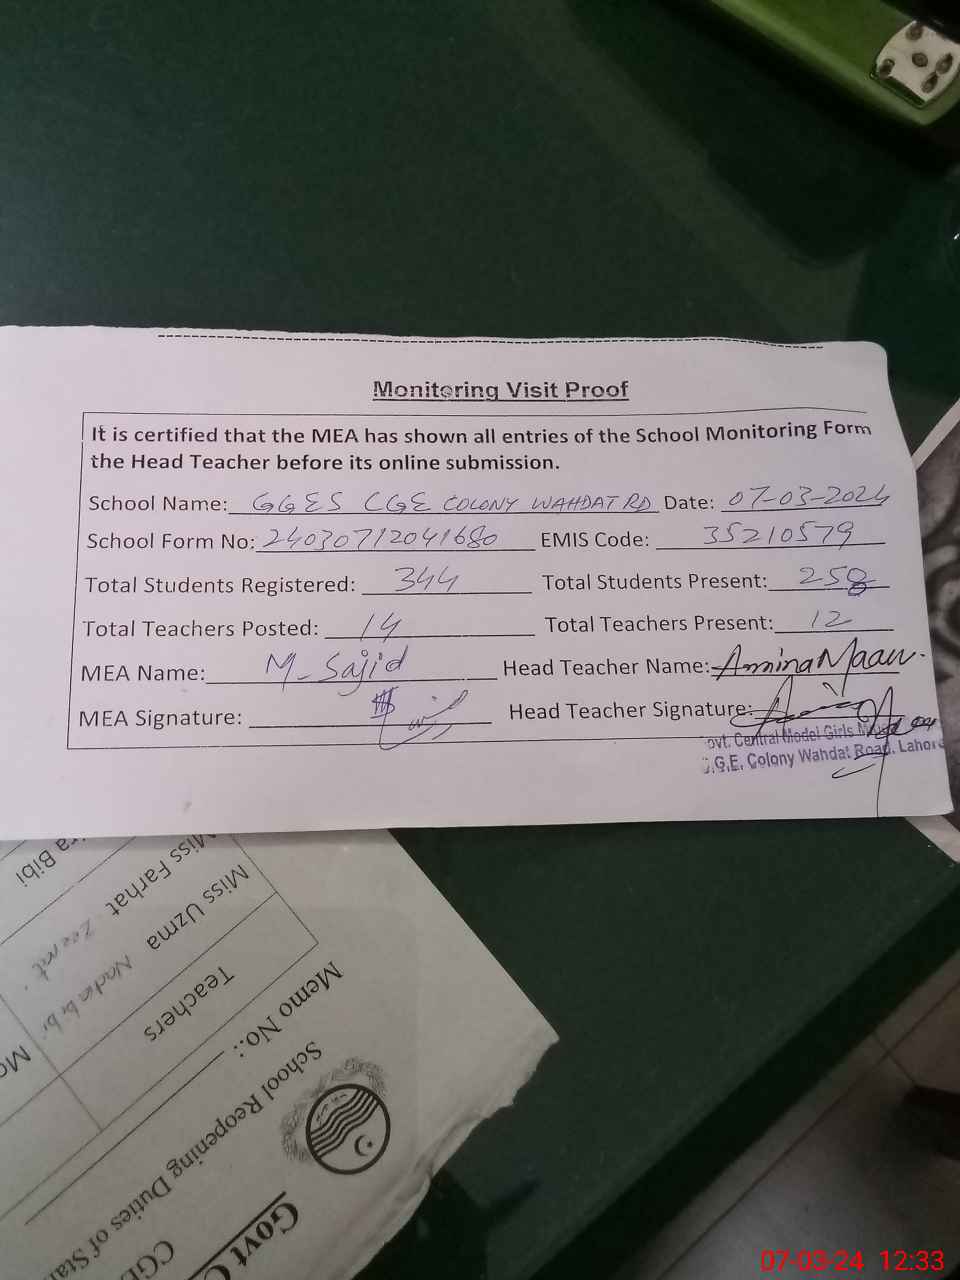 Monitoring Visit Proof
It is certified that the MEA has shown all entries of the School Monitoring Form
the Head Teacher before its online submission.
School Name: GGES CGE COLONY WAHDAT RD Date: 07-03-2024
School Form No: 24030712041680 EMIS Code: 35210579
Total Students Registered: 344 Total Students Present: 258
Total Teachers Posted: 14 Total Teachers Present: 12
MEA Name: M_Sajid Head Teacher Name: Amina Maan.
MEA Signature: Head Teacher Signature:
ovt. Central Model Girls
.G.E. Colony Wahdat Road, Lahore
Govt
CGE
School Reopening Duties of Sta
Memo No.:
Teachers
Miss Uzma Nadia bibi
Miss Farhat
ra Bibi
07-03-24 12:33